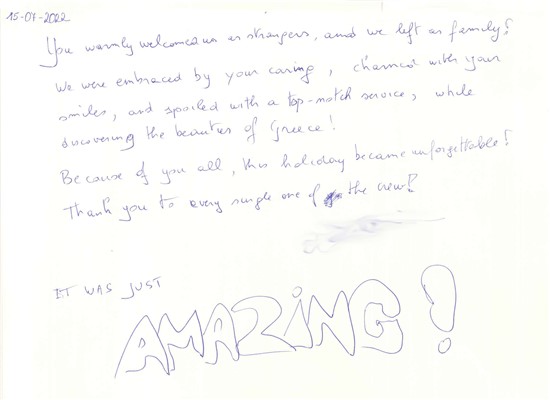 15-07-2022
You warmly welcomed us as strangers, and we left as family!
We were embraced by your caring, charmed with your
smiles, and spoiled with a top-notch service, while
discovering the beauties of Greece!
Because of you all, this holiday became unforgettable!
Thank you to every single one of the crew!
IT WAS JUST
AMAZING!